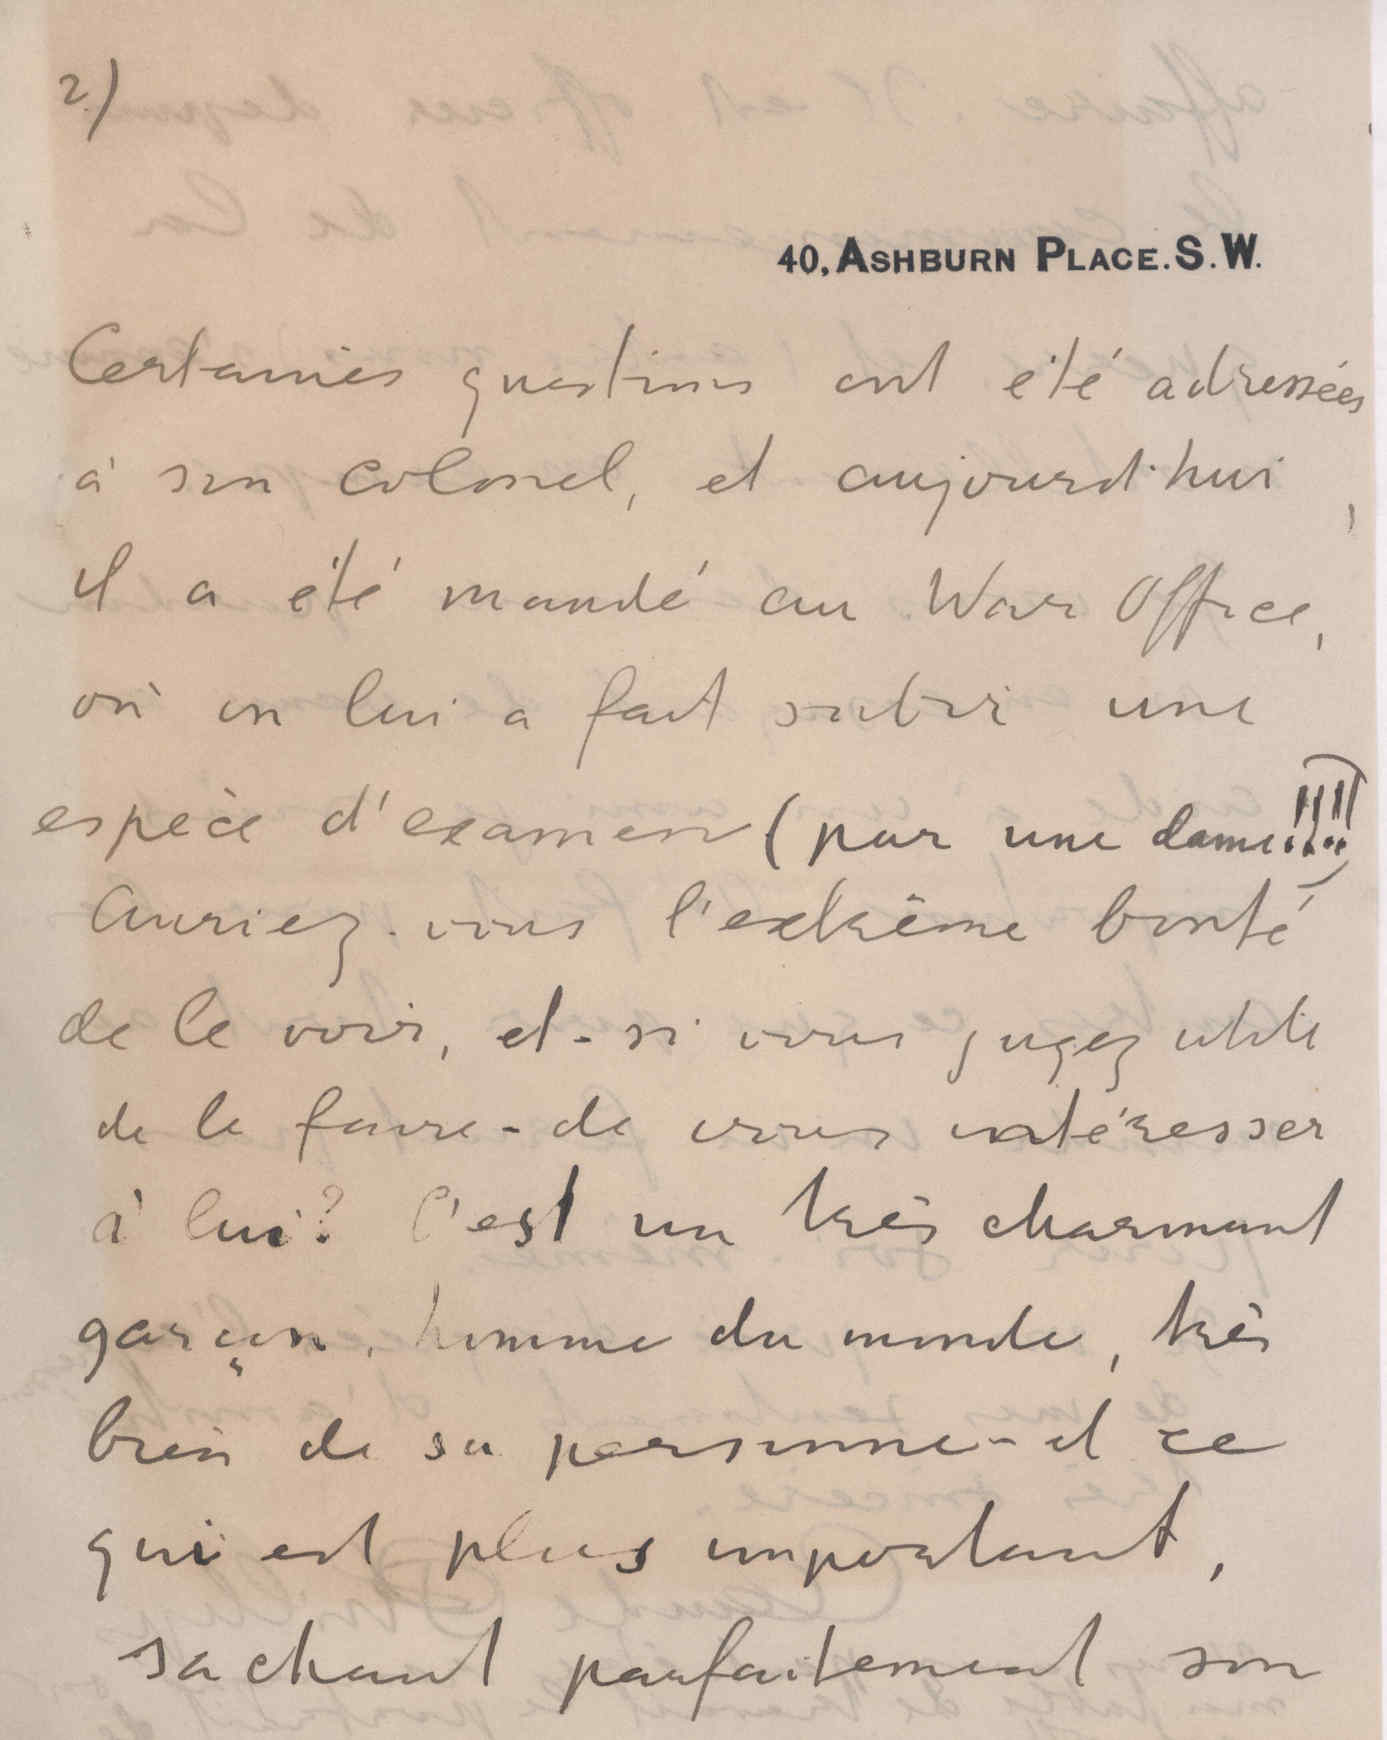 2.)
40, ASHBURN PLACE. S. W.
Certaines questions ont été adressées
à son colonel, et aujourd'hui,
il a été mandé au War Office,
où on lui a fait subir une
espèce d'examen (par une dame!!!!)
Auriez-vous l'extrême bonté
de le voir, et - si vous jugez utile
de le faire - de vous intéresser
à lui? C'est un très charmant
garçon, homme du monde, très
bien de sa personne - et ce
qui est plus important,
sachant parfaitement son